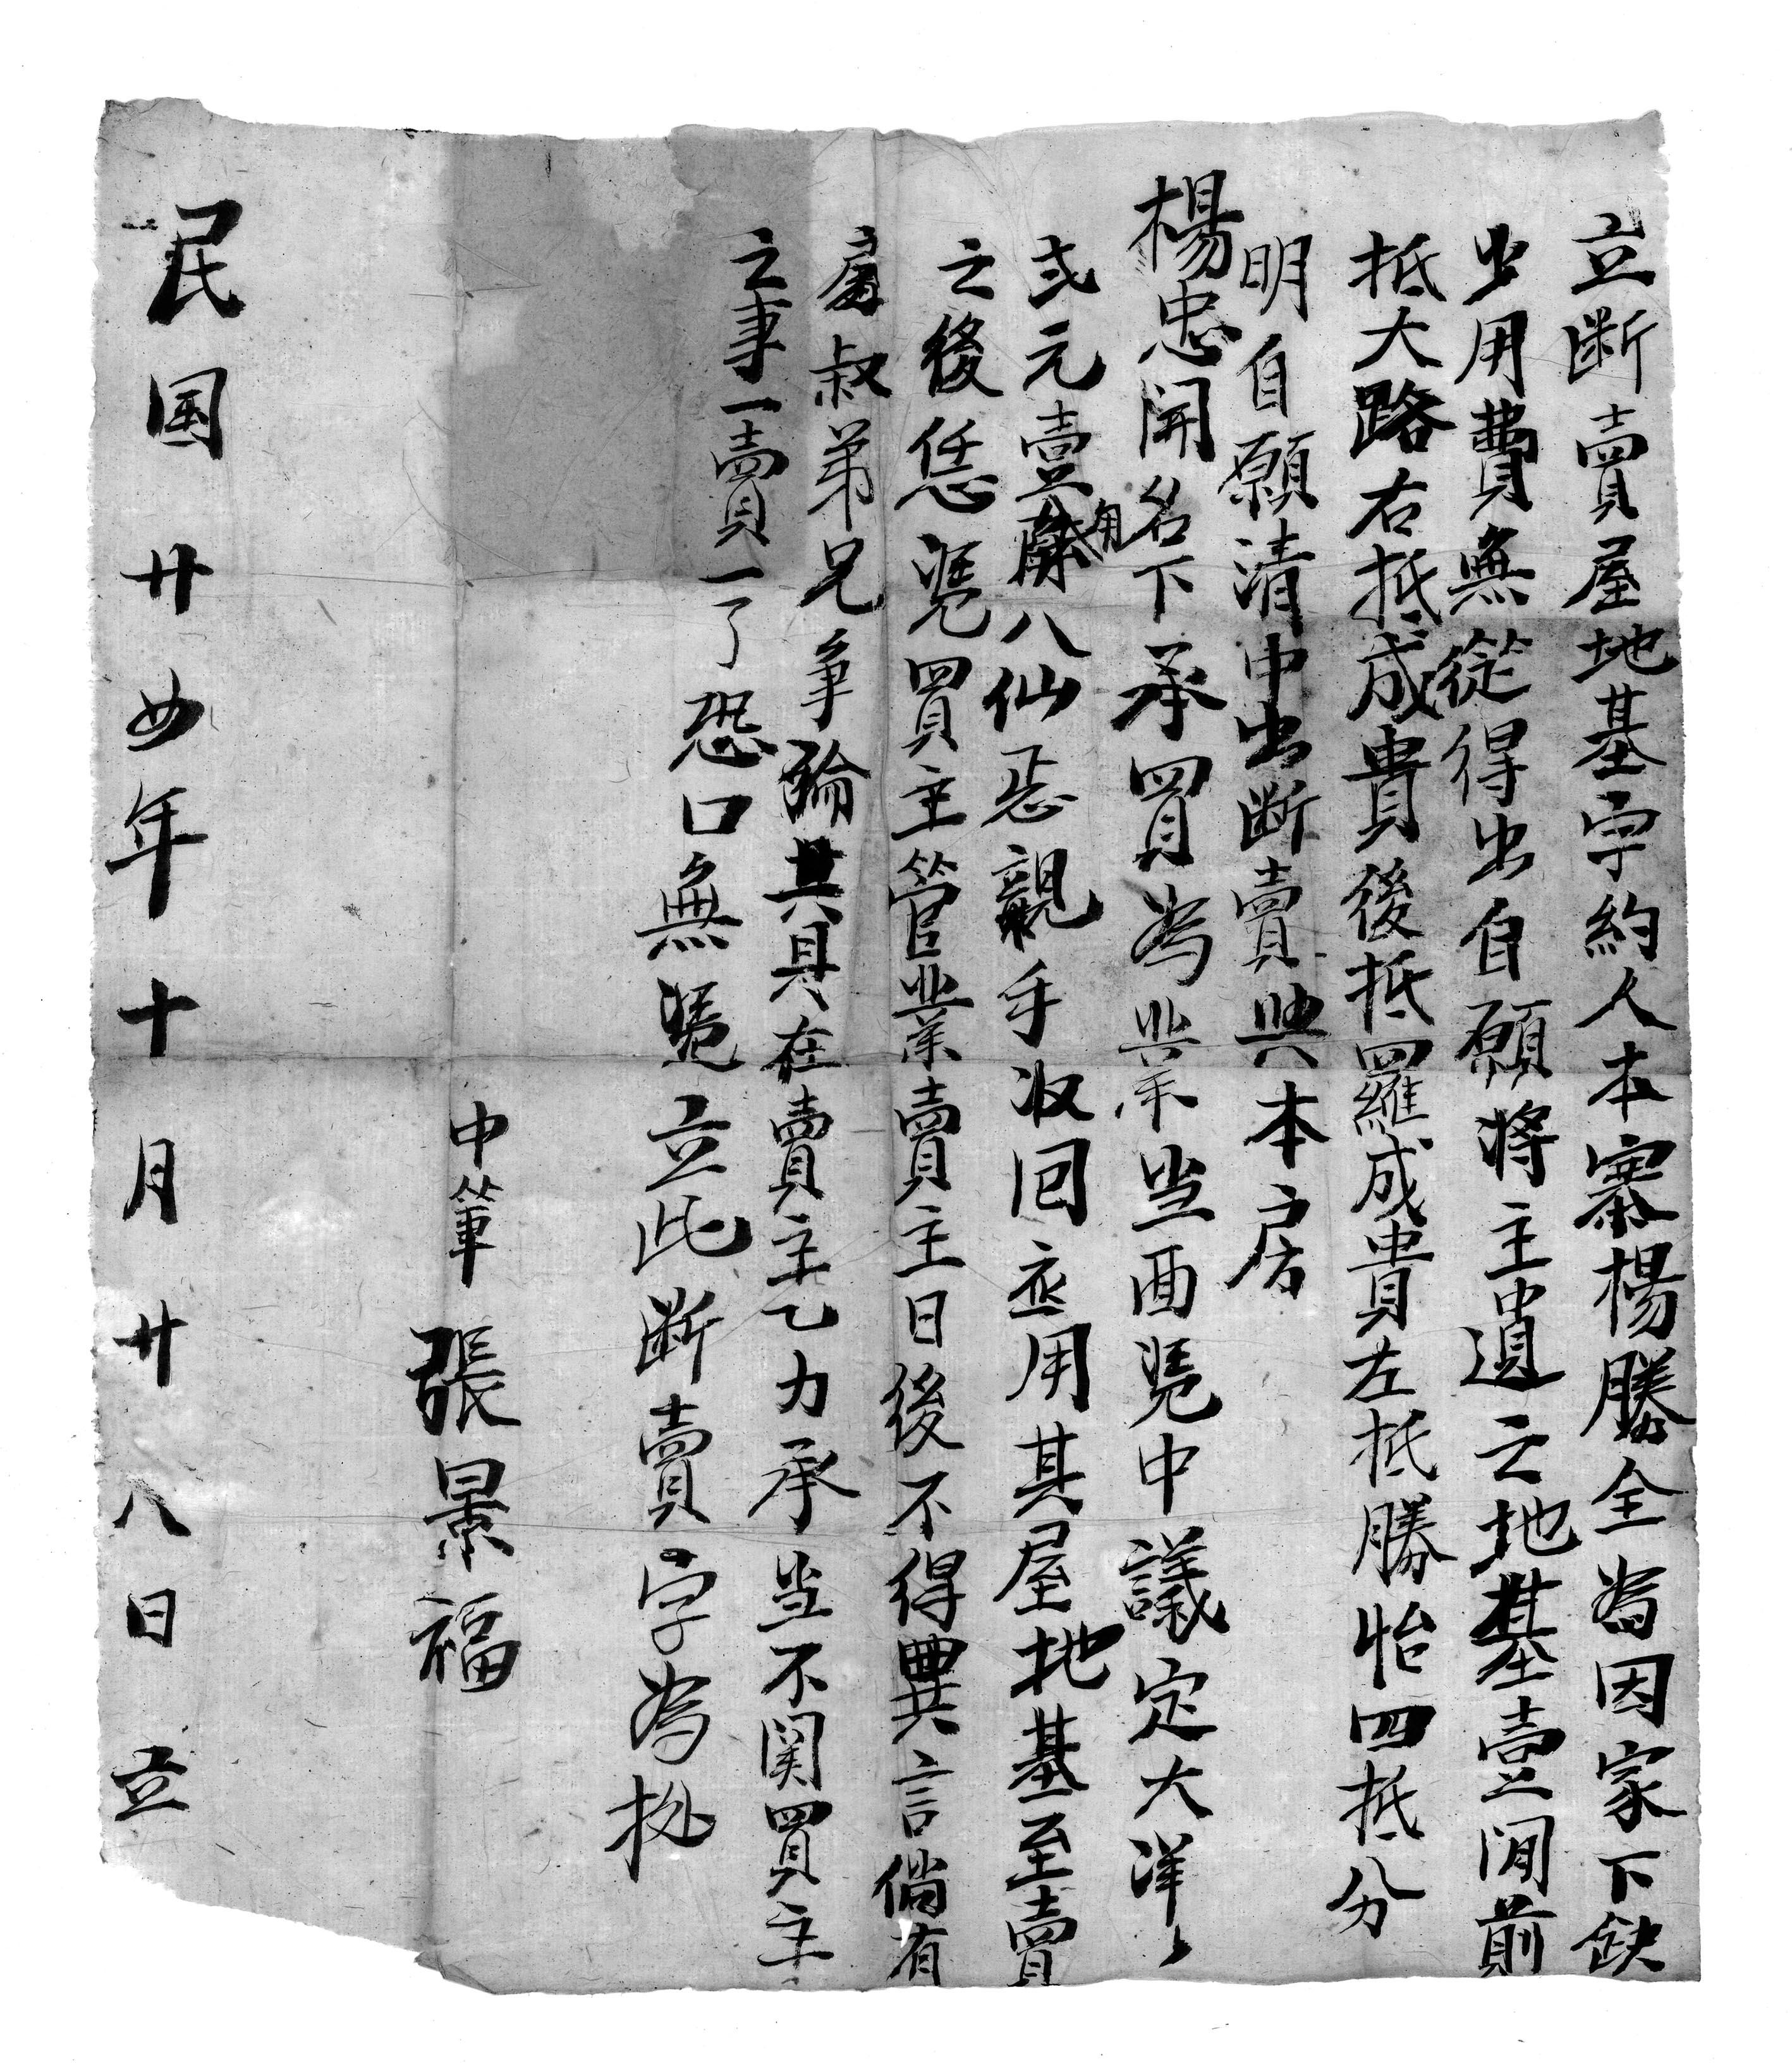 立断賣屋地基字約人本寨楊勝全為因家下缺
少用費無從得出自願將主遺之地基壹間前
抵大路右抵成貴後抵羅成貴左抵勝怡四抵分
明自願清中出断賣與本房
楊忠開名下承買為業当面凭中議定大洋
弍元壹角八仙恶親手收回应用其屋地基至賣
之後恁凴買主管業賣主日後不得異言倘有
房叔弟兄争論其具在賣主乙力承当不関買主
之事一賣一了恐口無凴立此断賣字為执
中筆 張景福
民国廿四年十月廿八日立